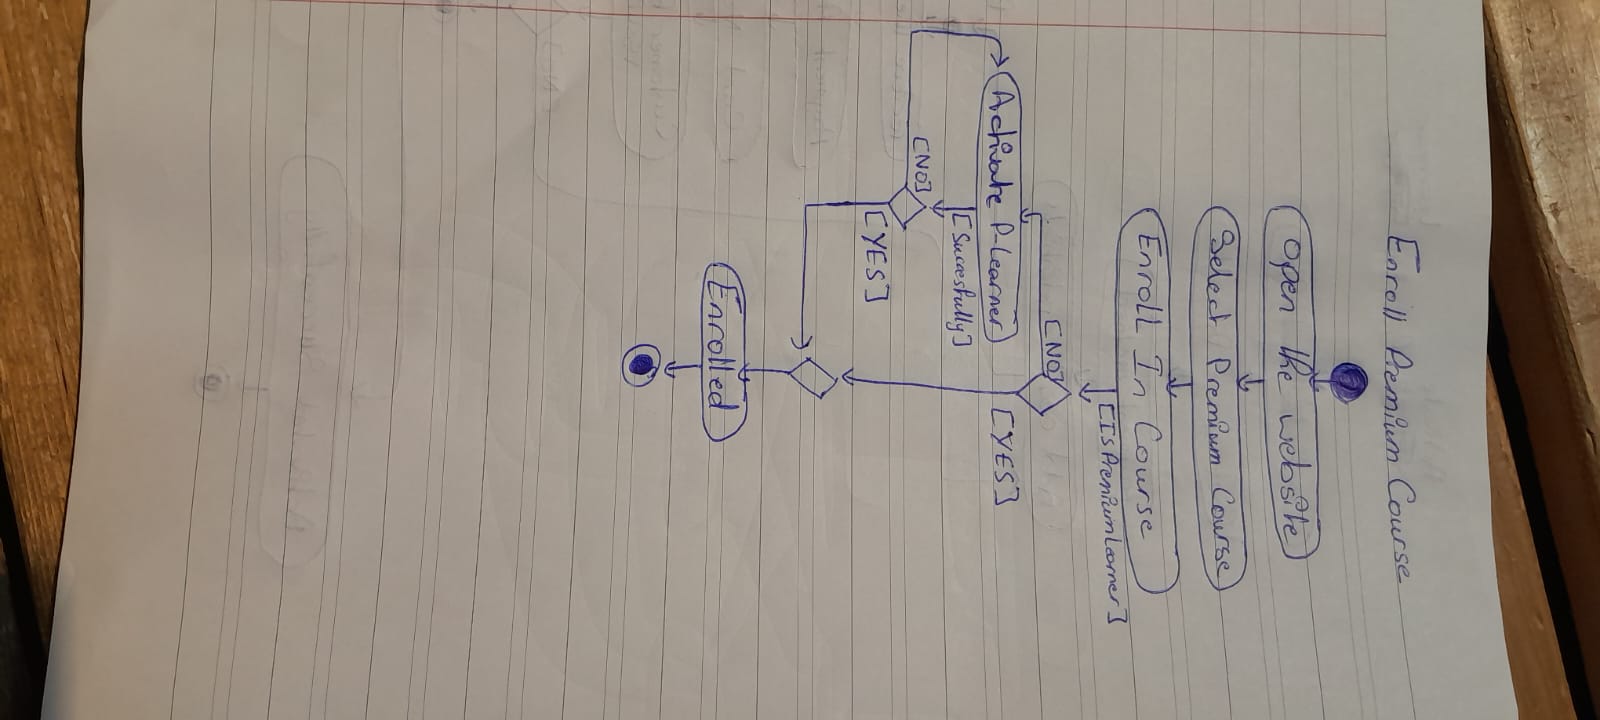 Enroll Premium Course
Open the website
Select Premium Course
Enroll In Course
[IsPremiumLearner]
[NO]
Activate P-Learner
[YES]
[Succesfully]
[NO]
[YES]
Enrolled